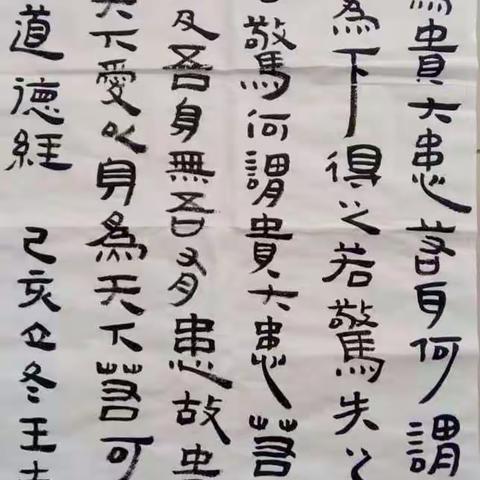 貴大患若身何謂
為下得之若驚失之
驚何謂貴大患若
及吾身無吾有患故
天下愛以身為天下若可
道德經 己亥立冬王